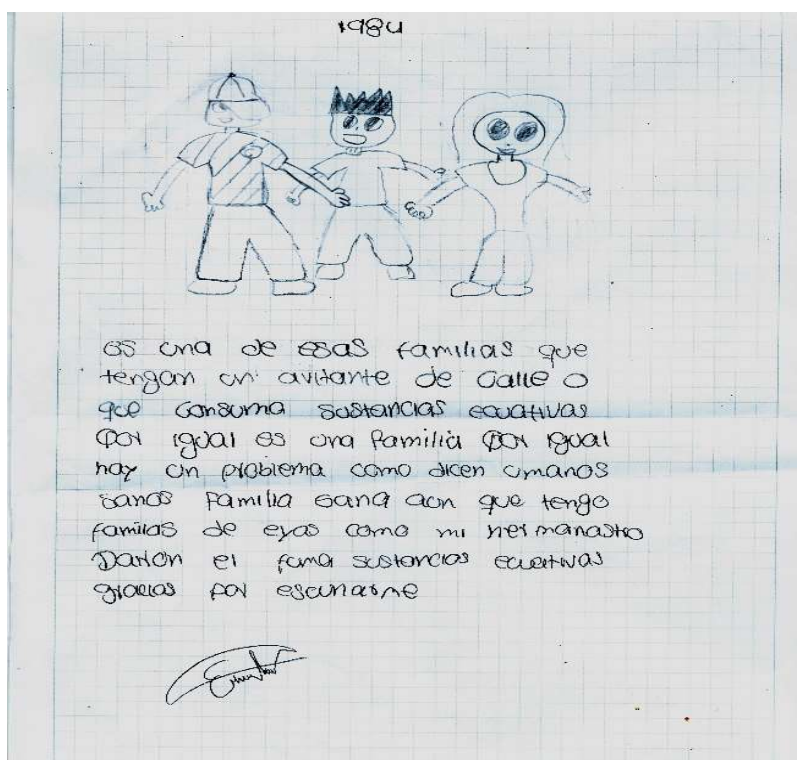 1984
es una de esas familias que
tengan un avitante de calle o
que consuma sustancias ecuativas
por igual es una familia por igual
hay un problema como dicen umanos
sanos familia sana aun que tengo
familias de eyas como mi hermanastro
el fuma sustancias ecuativas
gracias por escucharme